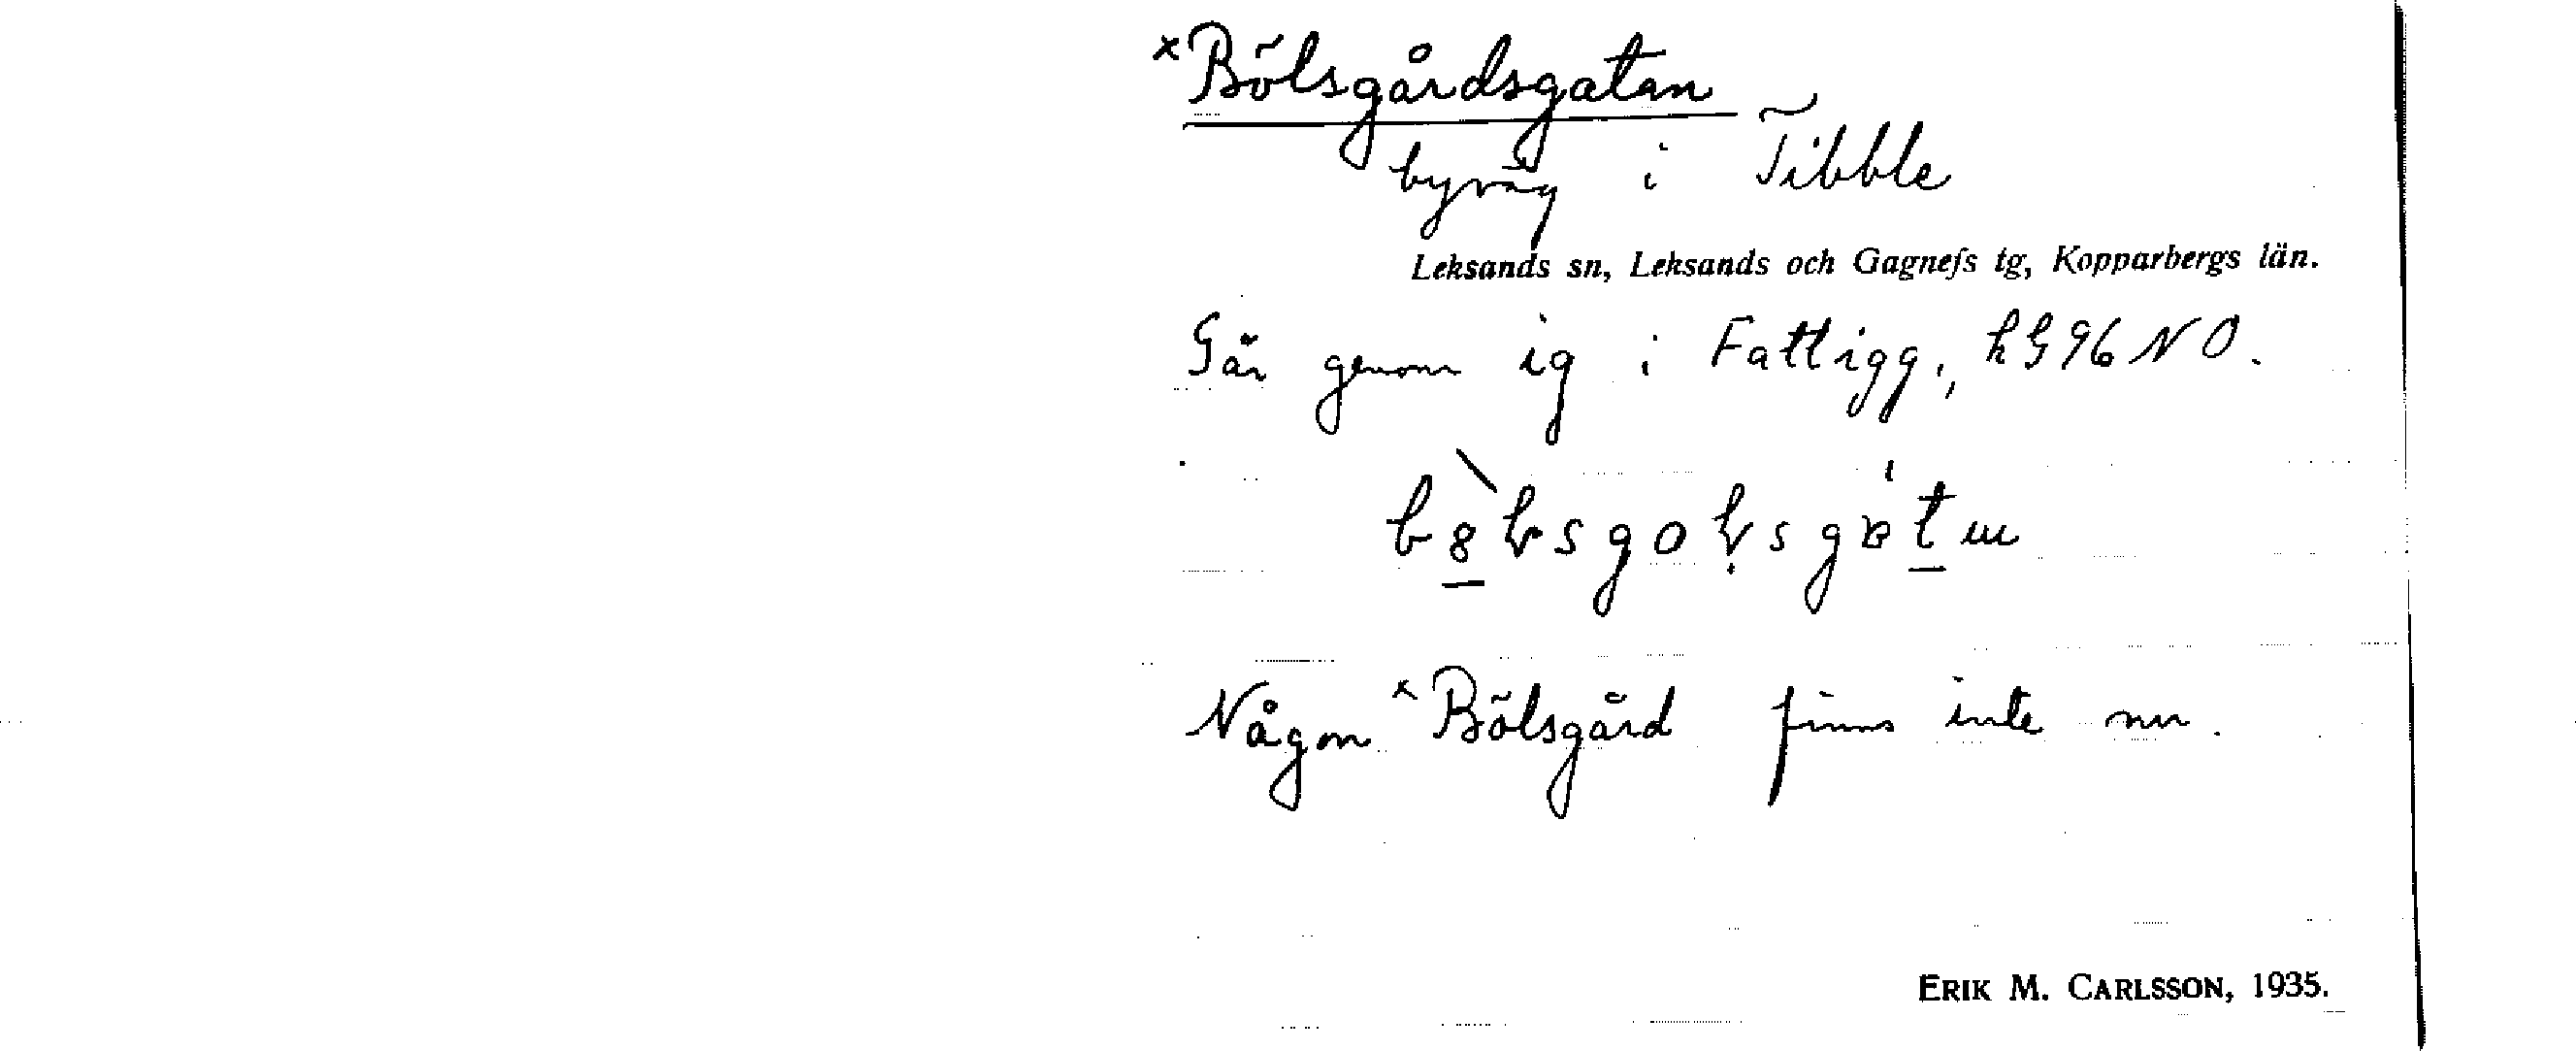 ×Bölsgårdsgatan
byväg i Tibble
Leksands sn, Leksands och Gagnefs tg, Kopparbergs län.
Går genom ig i Fattigg., hG96NO.
Någon ×Bölsgård finns inte nu.
ERIK M. CARLSSON, 1935.